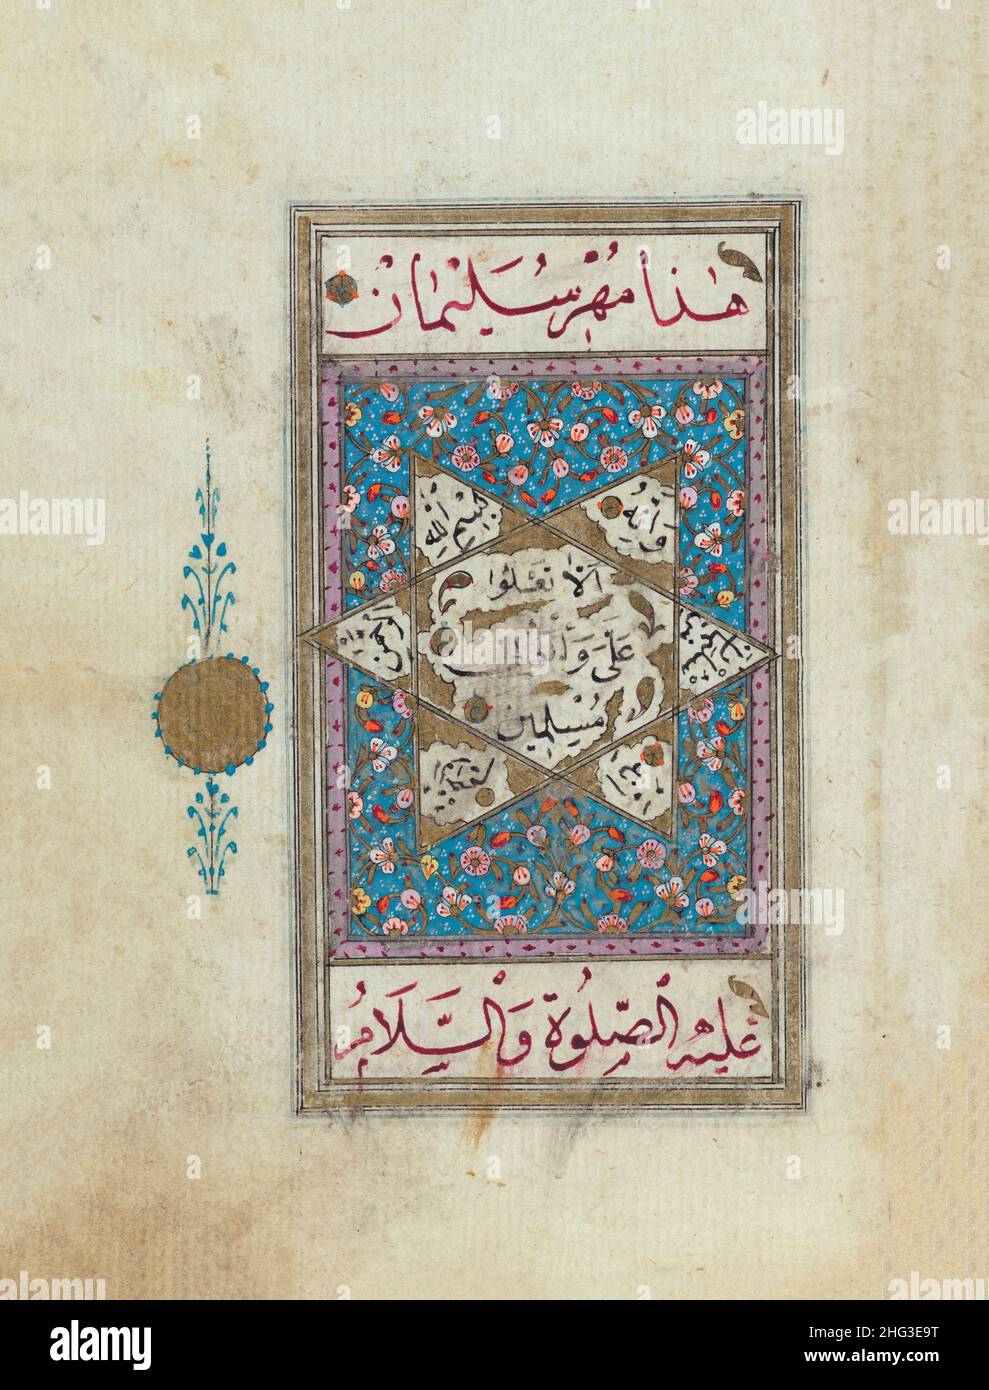 هٰذَا مُهْرِ سُلَيْمَانْ
وَاِنَّهُ
بِسْمِ اللّٰهِ
الرَّحْمٰنِ
اَلَّا تَعْلُوا
عَلَىَّ وَأْتُونِى
مُسْلِمِينَ
عَلَيْهِ الصَّلٰوةُ وَالسَّلَامُ
alamy
Image ID: 2HG3E9T
www.alamy.com